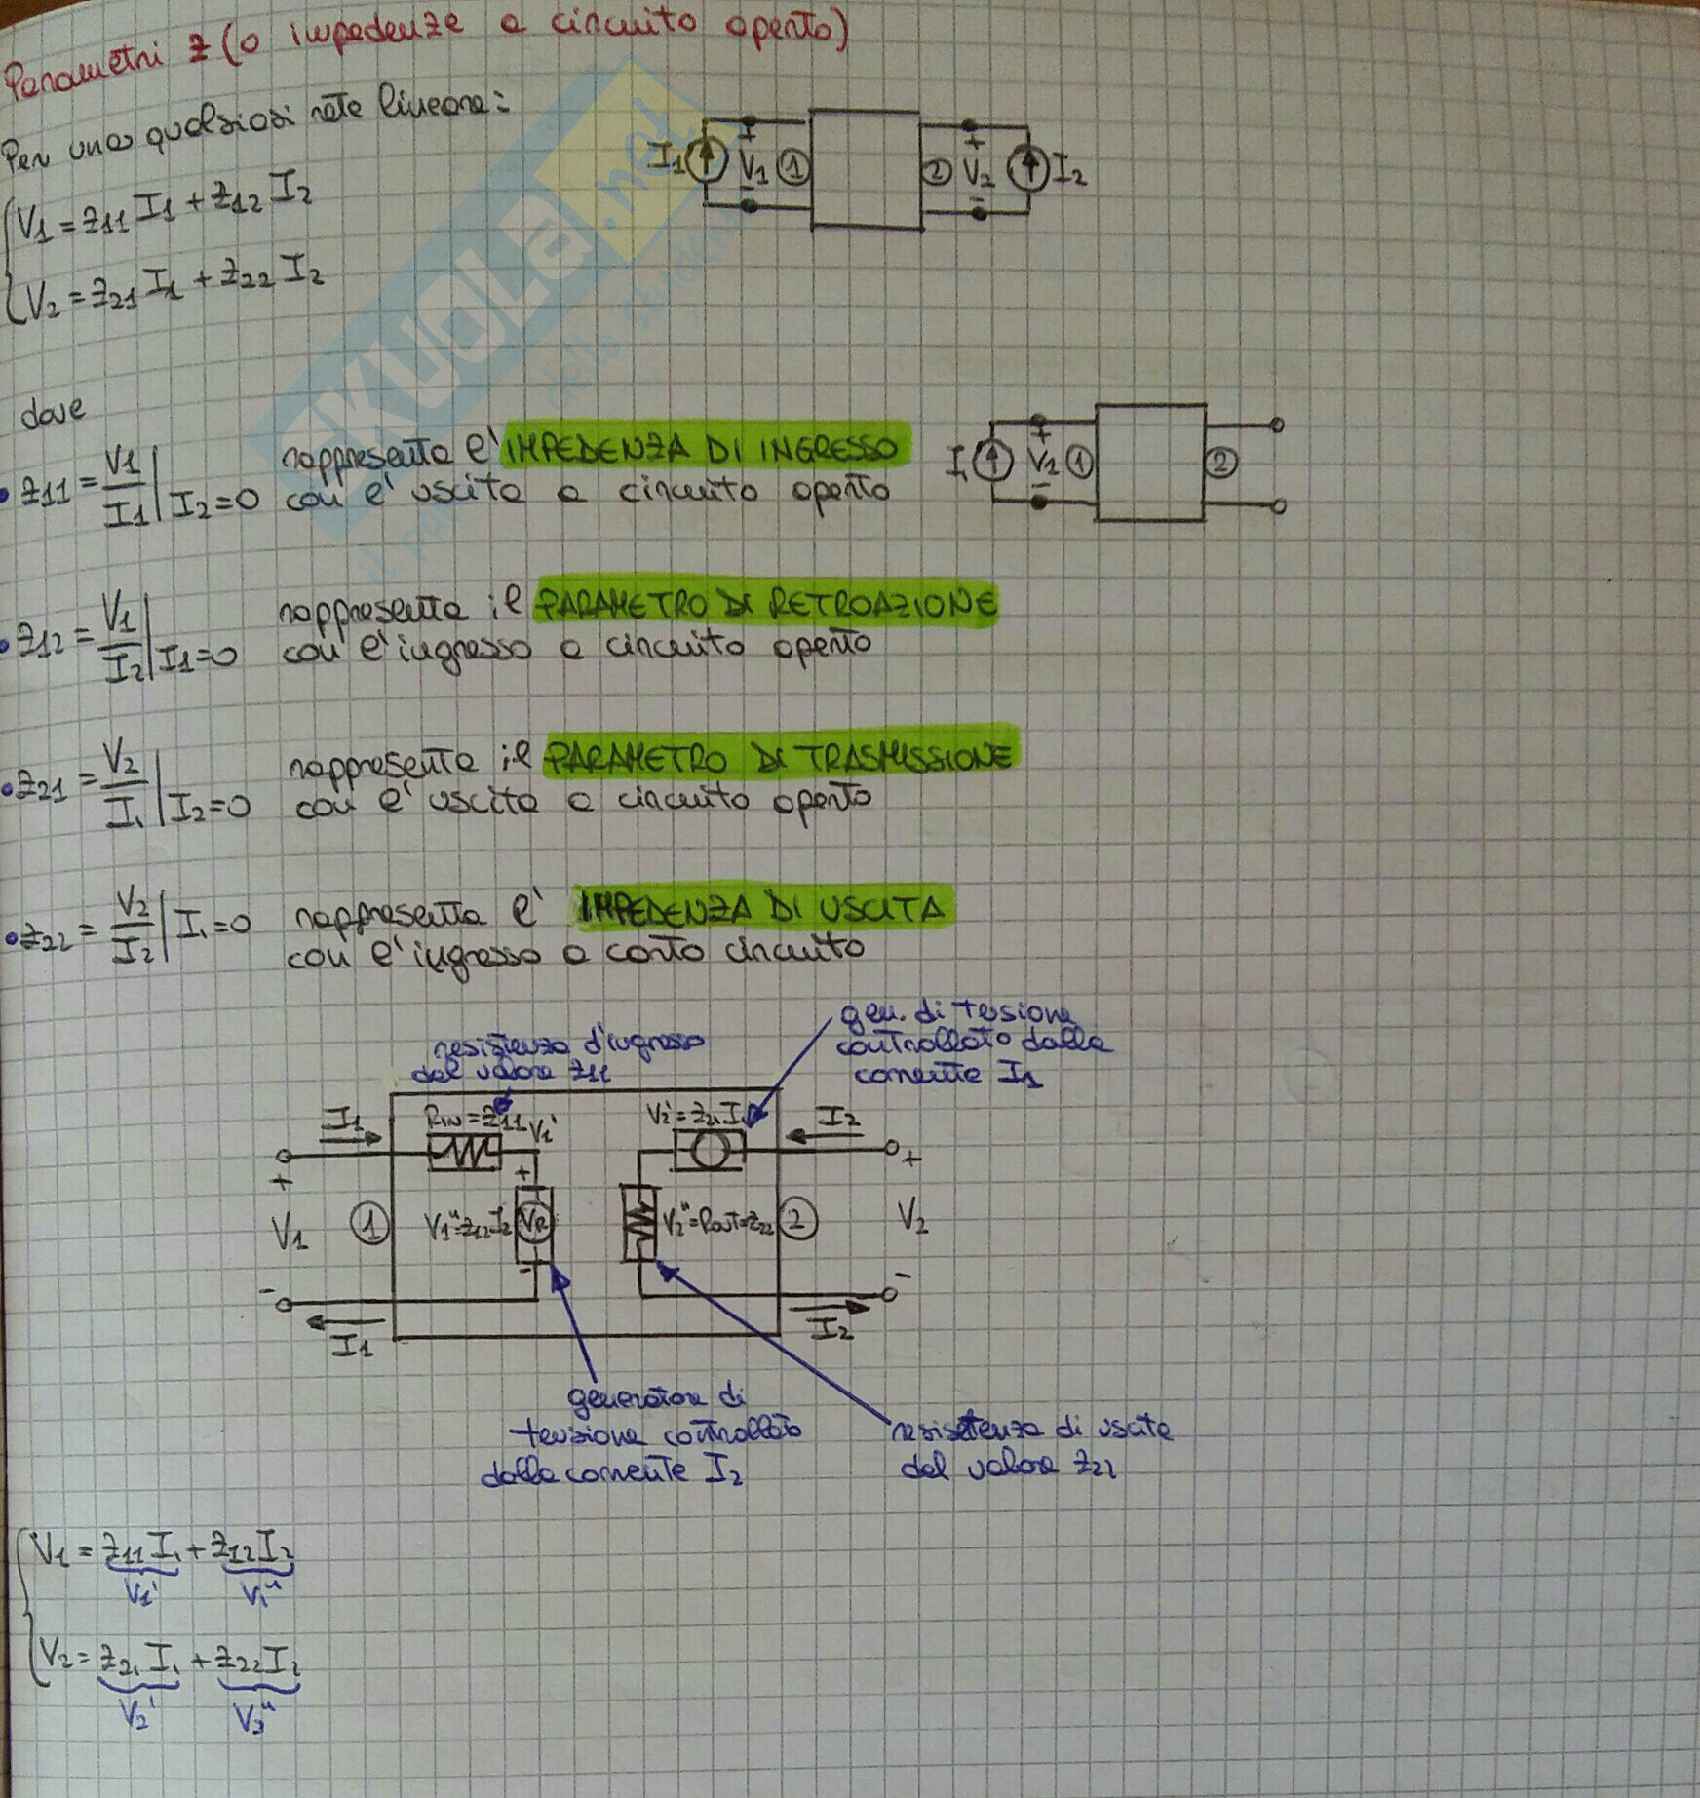 Parametri z (o impedenze a circuito aperto)
Per una qualsiasi rete lineare:
V1 = z11 I1 + z12 I2
V2 = z21 I1 + z22 I2
I1 + V1 - ① ② + V2 - I2
SKUOLA.net
dove
• z11 = V1/I1 | I2=0 rappresenta l'IMPEDENZA DI INGRESSO
con l'uscita a circuito aperto
I + V1 - ① ②
• z12 = V1/I2 | I1=0 rappresenta il PARAMETRO DI RETROAZIONE
con l'ingresso a circuito aperto
• z21 = V2/I1 | I2=0 rappresenta il PARAMETRO DI TRASMISSIONE
con l'uscita a circuito aperto
• z22 = V2/I2 | I1=0 rappresenta l'IMPEDENZA DI USCITA
con l'ingresso a corto circuito
gen. di tesione
controllato dalla
corrente I1
resistenza d'ingresso
dal valore z11
I1 RIN = z11 V1' V2' = z21 I1 I2
+ + +
V1 ① V1" = z12 I2 VR V2" = Rout = z22 ② V2
- - -
I1 I2
generatore di
tensione controllato
dalla corrente I2
resisetenza di uscita
dal valore z22
V1 = z11 I1 + z12 I2
V1' V1"
V2 = z21 I1 + z22 I2
V2' V2"